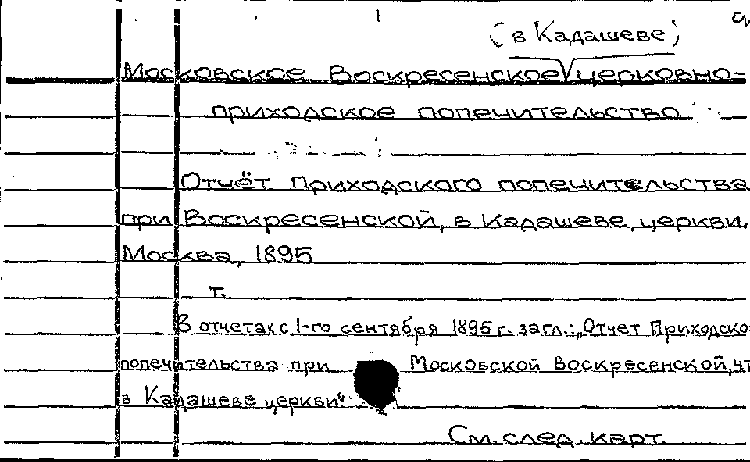 (в Кадашеве)
Московское Воскресенское церковно-
приходское попечительство
Отчёт Приходского попечительства
при Воскресенской, в Кадашеве, церкви.
Москва, 1895
т.
В отчетах с 1-го сентября 1895 г. загл.: „Отчет Приходско
попечительства при Московской Воскресенской, чт
в Кадашеве церкви"
См. след. карт.